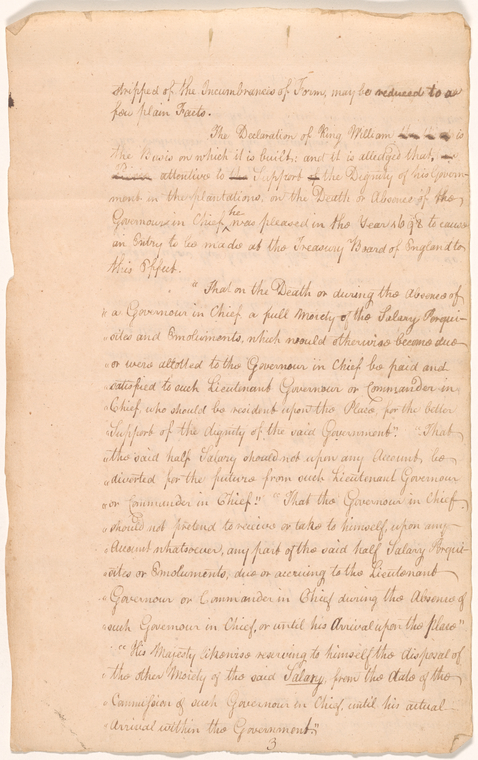 stripped of the Incumbrancies of Form, may be reduced to a
few plain Facts.
The Declaration of King William is
the Basis on which it is built; and it is alledged that,
attentive to Support of the Dignity of his Govern-
ment in the plantations, on the Death or Absence of the
Governour in Chief, he was pleased in the Year 1698 to cause
an Entry to be made at the Treasury Board of England to
this Effect.
"That on the Death or during the Absence of
"a Governour in Chief a full Moiety of the Salary Perqui-
"sites and Emoluments, which would otherwise become due
"or were allotted to the Governour in Chief be paid and
"satisfied to such Lieutenant Governour or Commander in
"Chief, who should be resident upon the Place, for the better
"Support of the dignity of the said Government." "That
"the said half Salary should not upon any Account, be
"diverted for the future from such Lieutenant Governour
"or Commander in Chief." "That the Governour in Chief
"should not pretend to receive or take to himself, upon any
"Account whatsoever, any part of the said half Salary Perqui-
"sites or Emoluments, due or accruing to the Lieutenant
"Governour or Commander in Chief during the Absence of
"such Governour in Chief, or until his Arrival upon the place"
"His Majesty likewise reserving to himself the disposal of
"the other Moiety of the said Salary, from the date of the
"Commission of such Governour in Chief, until his actual
"Arrival within the Government."
3